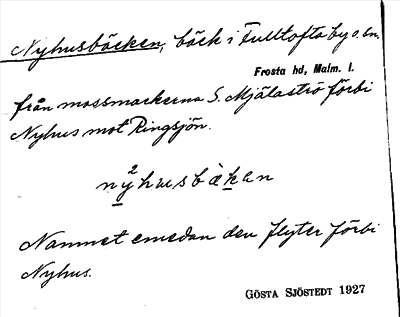 Nyhusbäcken, bäck i Fulltofta by o. sn.
Frosta hd, Malm. l.
från mossmarkerna S. Mjälaströ förbi
Nyhus mot Ringsjön.
ný²husbäkan
Namnet emedan den flyter förbi
Nyhus.
GÖSTA SJÖSTEDT 1927